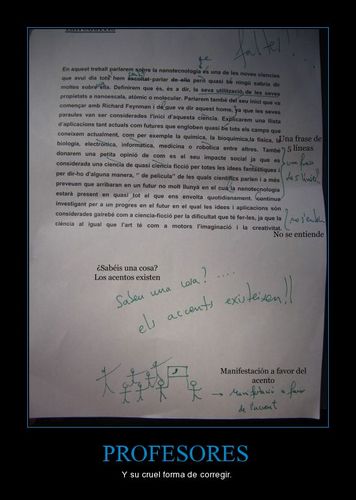 faltes!!
que
En aquest treball parlarem sobre la nanotecnologia és una de les noves ciencies
que avui dia tots hem escoltat parlar de ella però quasi bé ningú sabria dir
moltes sobre ella. Definirem que és, és a dir, la seva utilització de les seves
propietats a nanoescala, atómic o molecular. Parlarem també del seu inici que va
començar amb Richard Feynman i de que va dir aquest home, ja que les seves
paraules van ser considerades l'inici d'aquesta ciencia. Explicarem una llista
d'aplicacions tant actuals com futures que engloben quasi bé tots els camps que
coneixem actualment, com per exemple la química, la bioquimica,la física, la
biología, electrònica, informàtica, medicina o robotica entre altres. També
donarem una petita opinió de com es el seu impacte social ja que es
considerada una ciencia de quasi ciencia ficció per totes les idees fantàstiques i
per dir-ho d'alguna manera, " de película" de les quals científics parlen i a més
preveuen que arribaran en un futur no molt llunyà en el cual la nanotecnologia
estarà present en quasi tot el que ens envolta quotidianament, continue
investigant per a un progres en el futur en el qual les idees i aplicacions són
considerades gairebé com a ciencia-ficció per la dificultat que té fer-les, ja que la
ciència al igual que l'art té com a motors l'imaginació i la creativitat.
Una frase de
5 líneas
una frase
de 5 línies!
no s'entén
No se entiende
¿Sabéis una cosa?
Los acentos existen
Sabeu una cosa? ....
els accents existeixen!!
Manifestación a favor del
acento
→ Manifestació a favor
de l'accent
PROFESORES
Y su cruel forma de corregir.